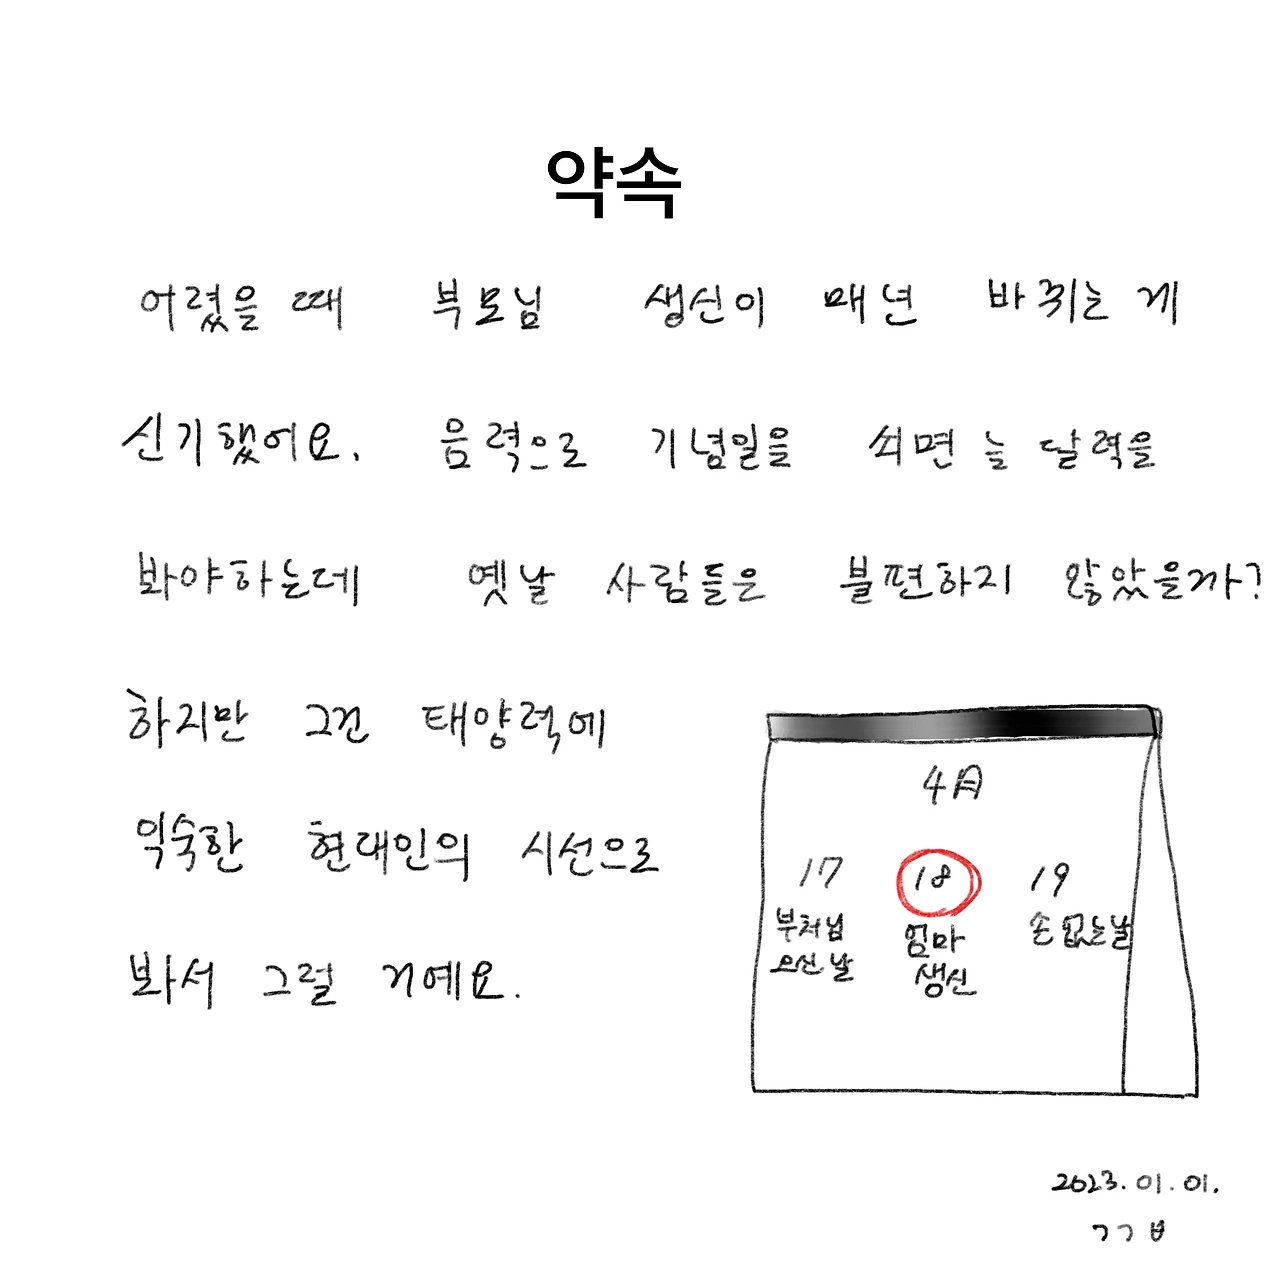 약속
어렸을 때 부모님 생신이 매년 바뀌는 게
신기했어요. 음력으로 기념일을 쇠면 늘 달력을
봐야하는데 옛날 사람들은 불편하지 않았을까?
하지만 그건 태양력에
익숙한 현대인의 시선으로
봐서 그럴 거예요.
4月
17 18 19
부처님 엄마 손 없는날
오신 날 생신
2023.01.01.
ㄱㄱㅂ